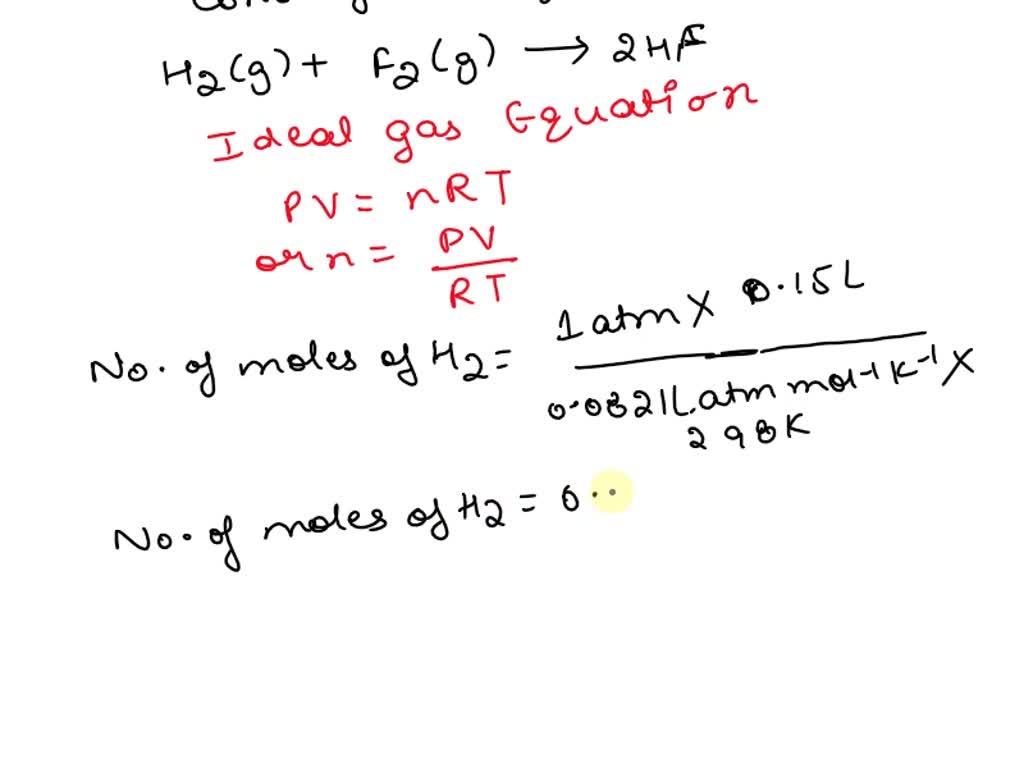 H2(g) + F2(g) → 2HF
Ideal gas Equation
PV = nRT
or n = PV
RT
1 atm X 0.15L
No. of moles of H2 =
0.0821L.atm mol-1 K-1 X
298K
No. of moles of H2 = 0.